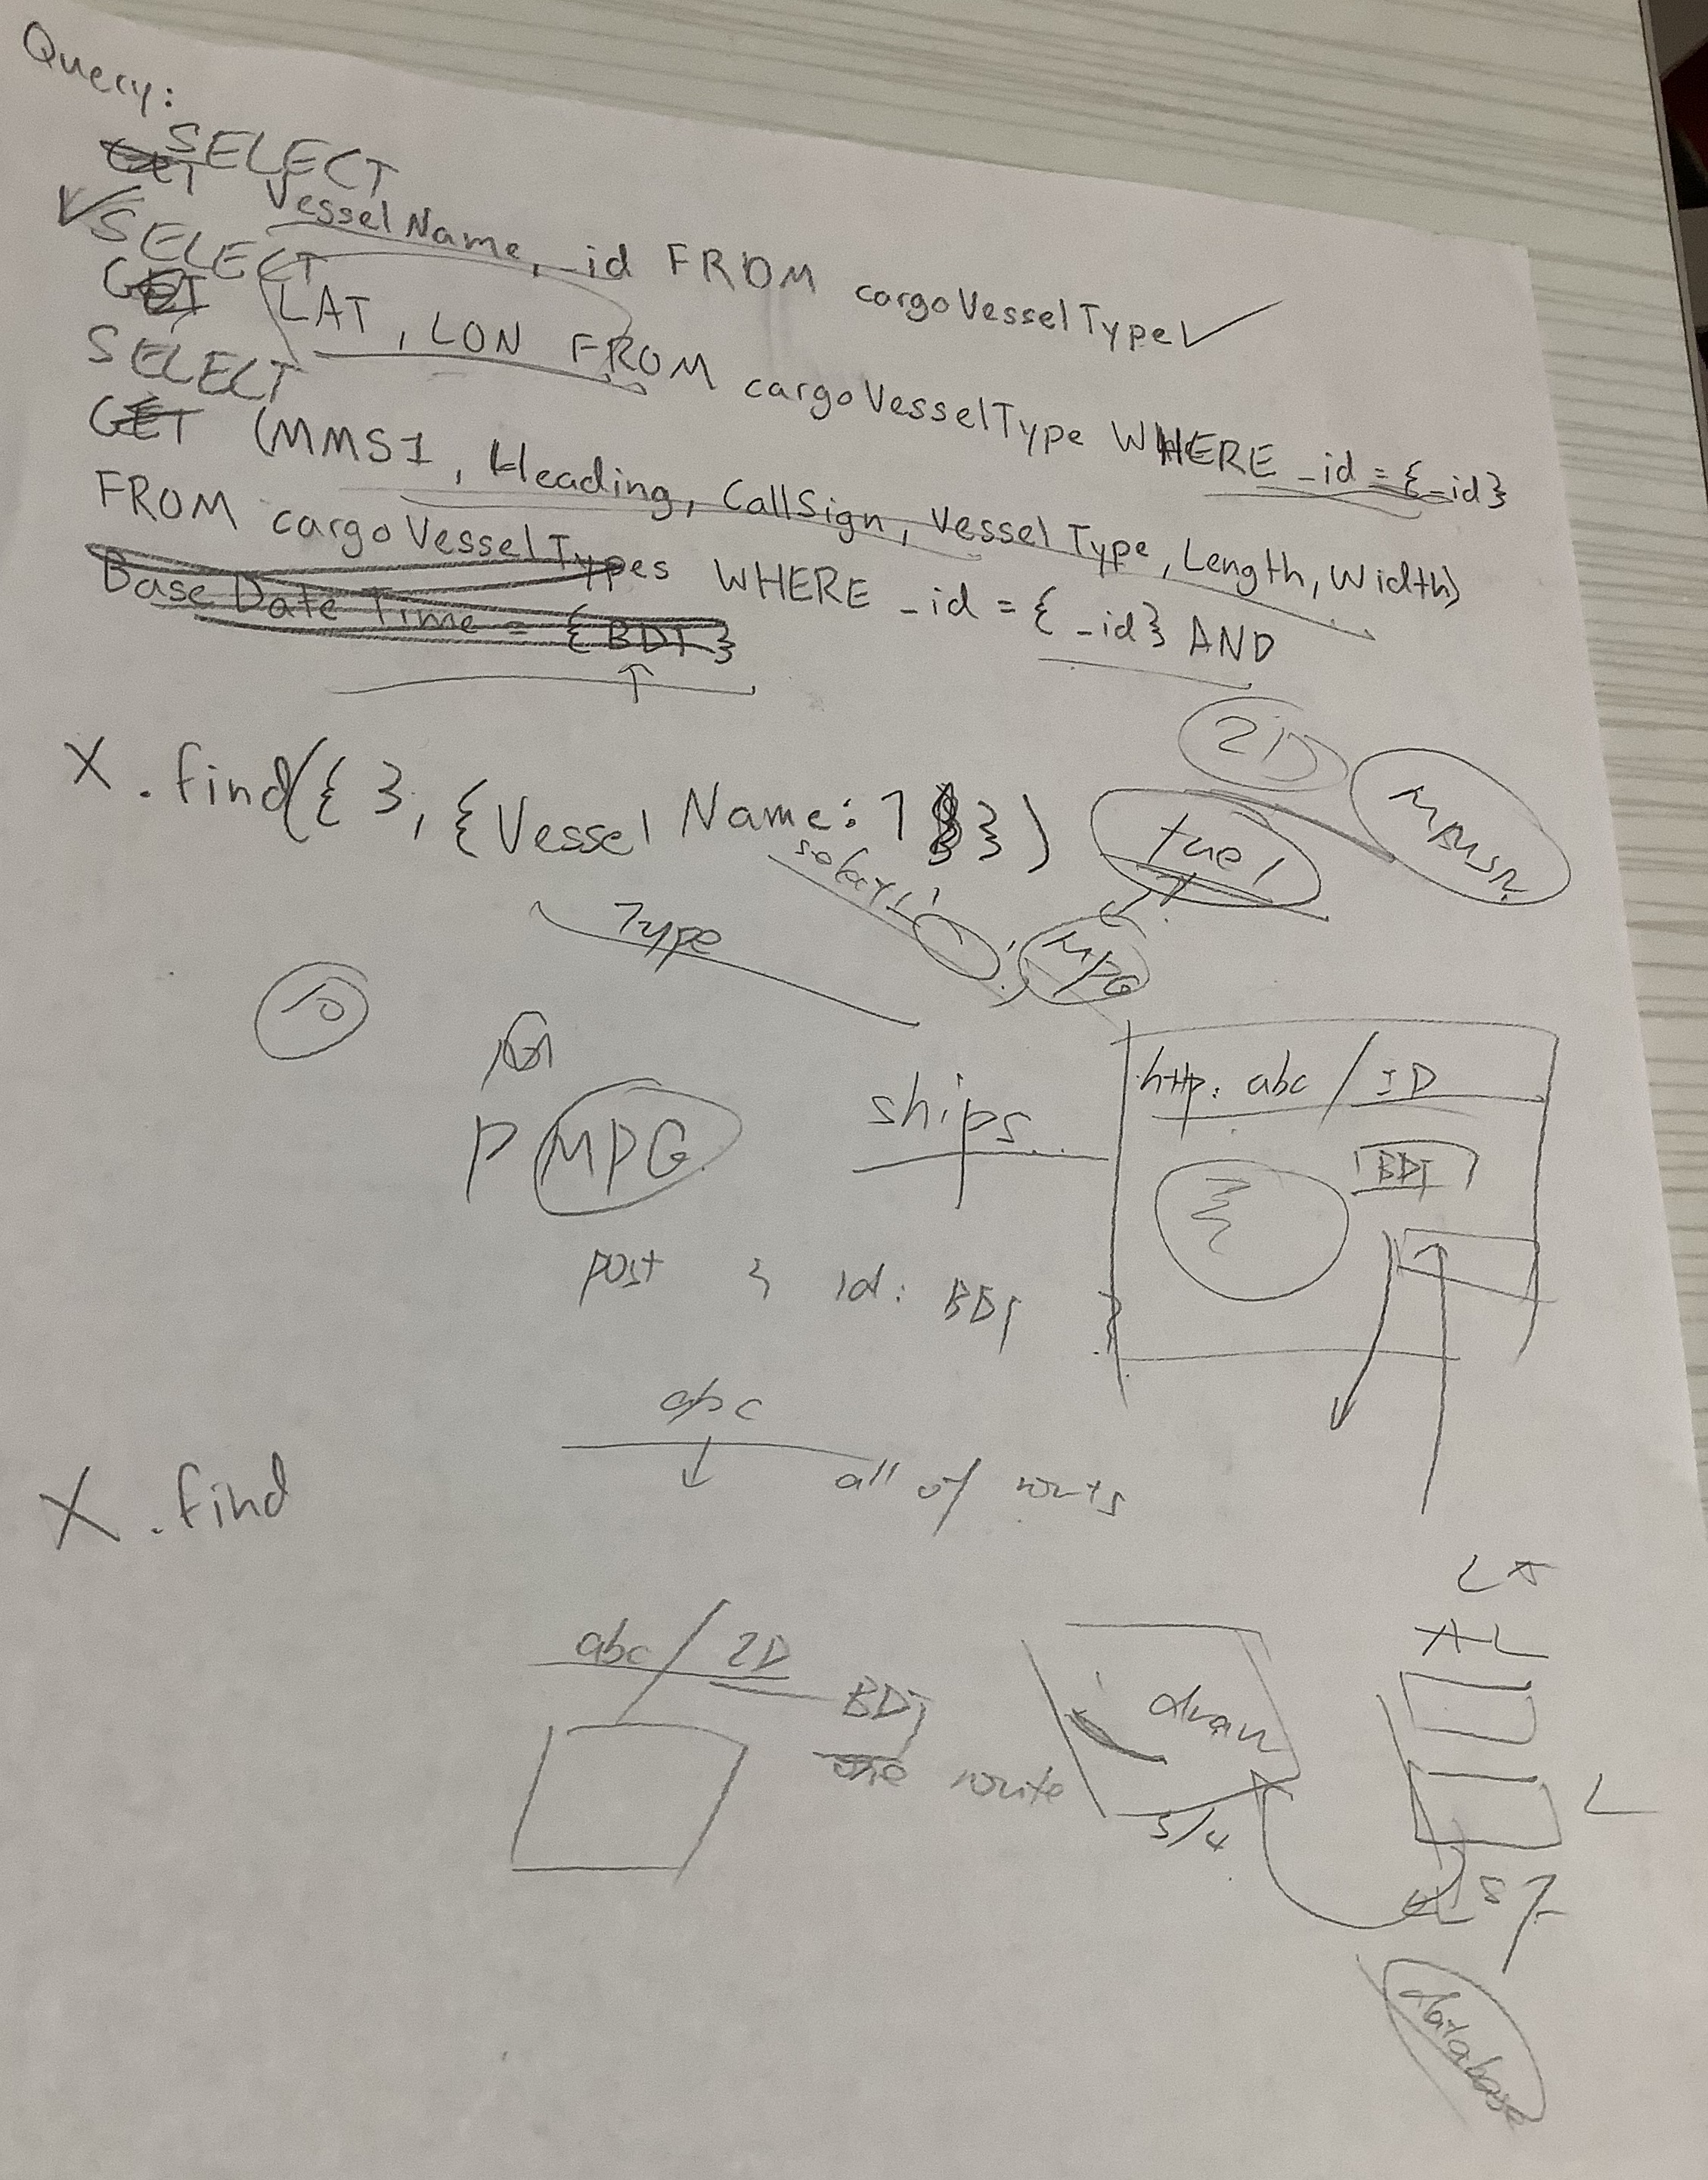 Query:
SELECT
GET VesselName, _id FROM cargoVesselType
SELECT
GET LAT, LON FROM cargoVesselType WHERE _id = {_id}
SELECT
GET (MMSI, Heading, CallSign, VesselType, Length, Width)
FROM cargoVesselTypes WHERE _id = {_id} AND
Base Date Time = {BDT}
X.find({ }, {VesselName: 1})
fuel
Type
MPG
ships
http: abc / ID
P MPG
BDT
post { id: BDT }
abc
all of routs
X.find
abc / ID
BDT
one route
draw
5/4
database